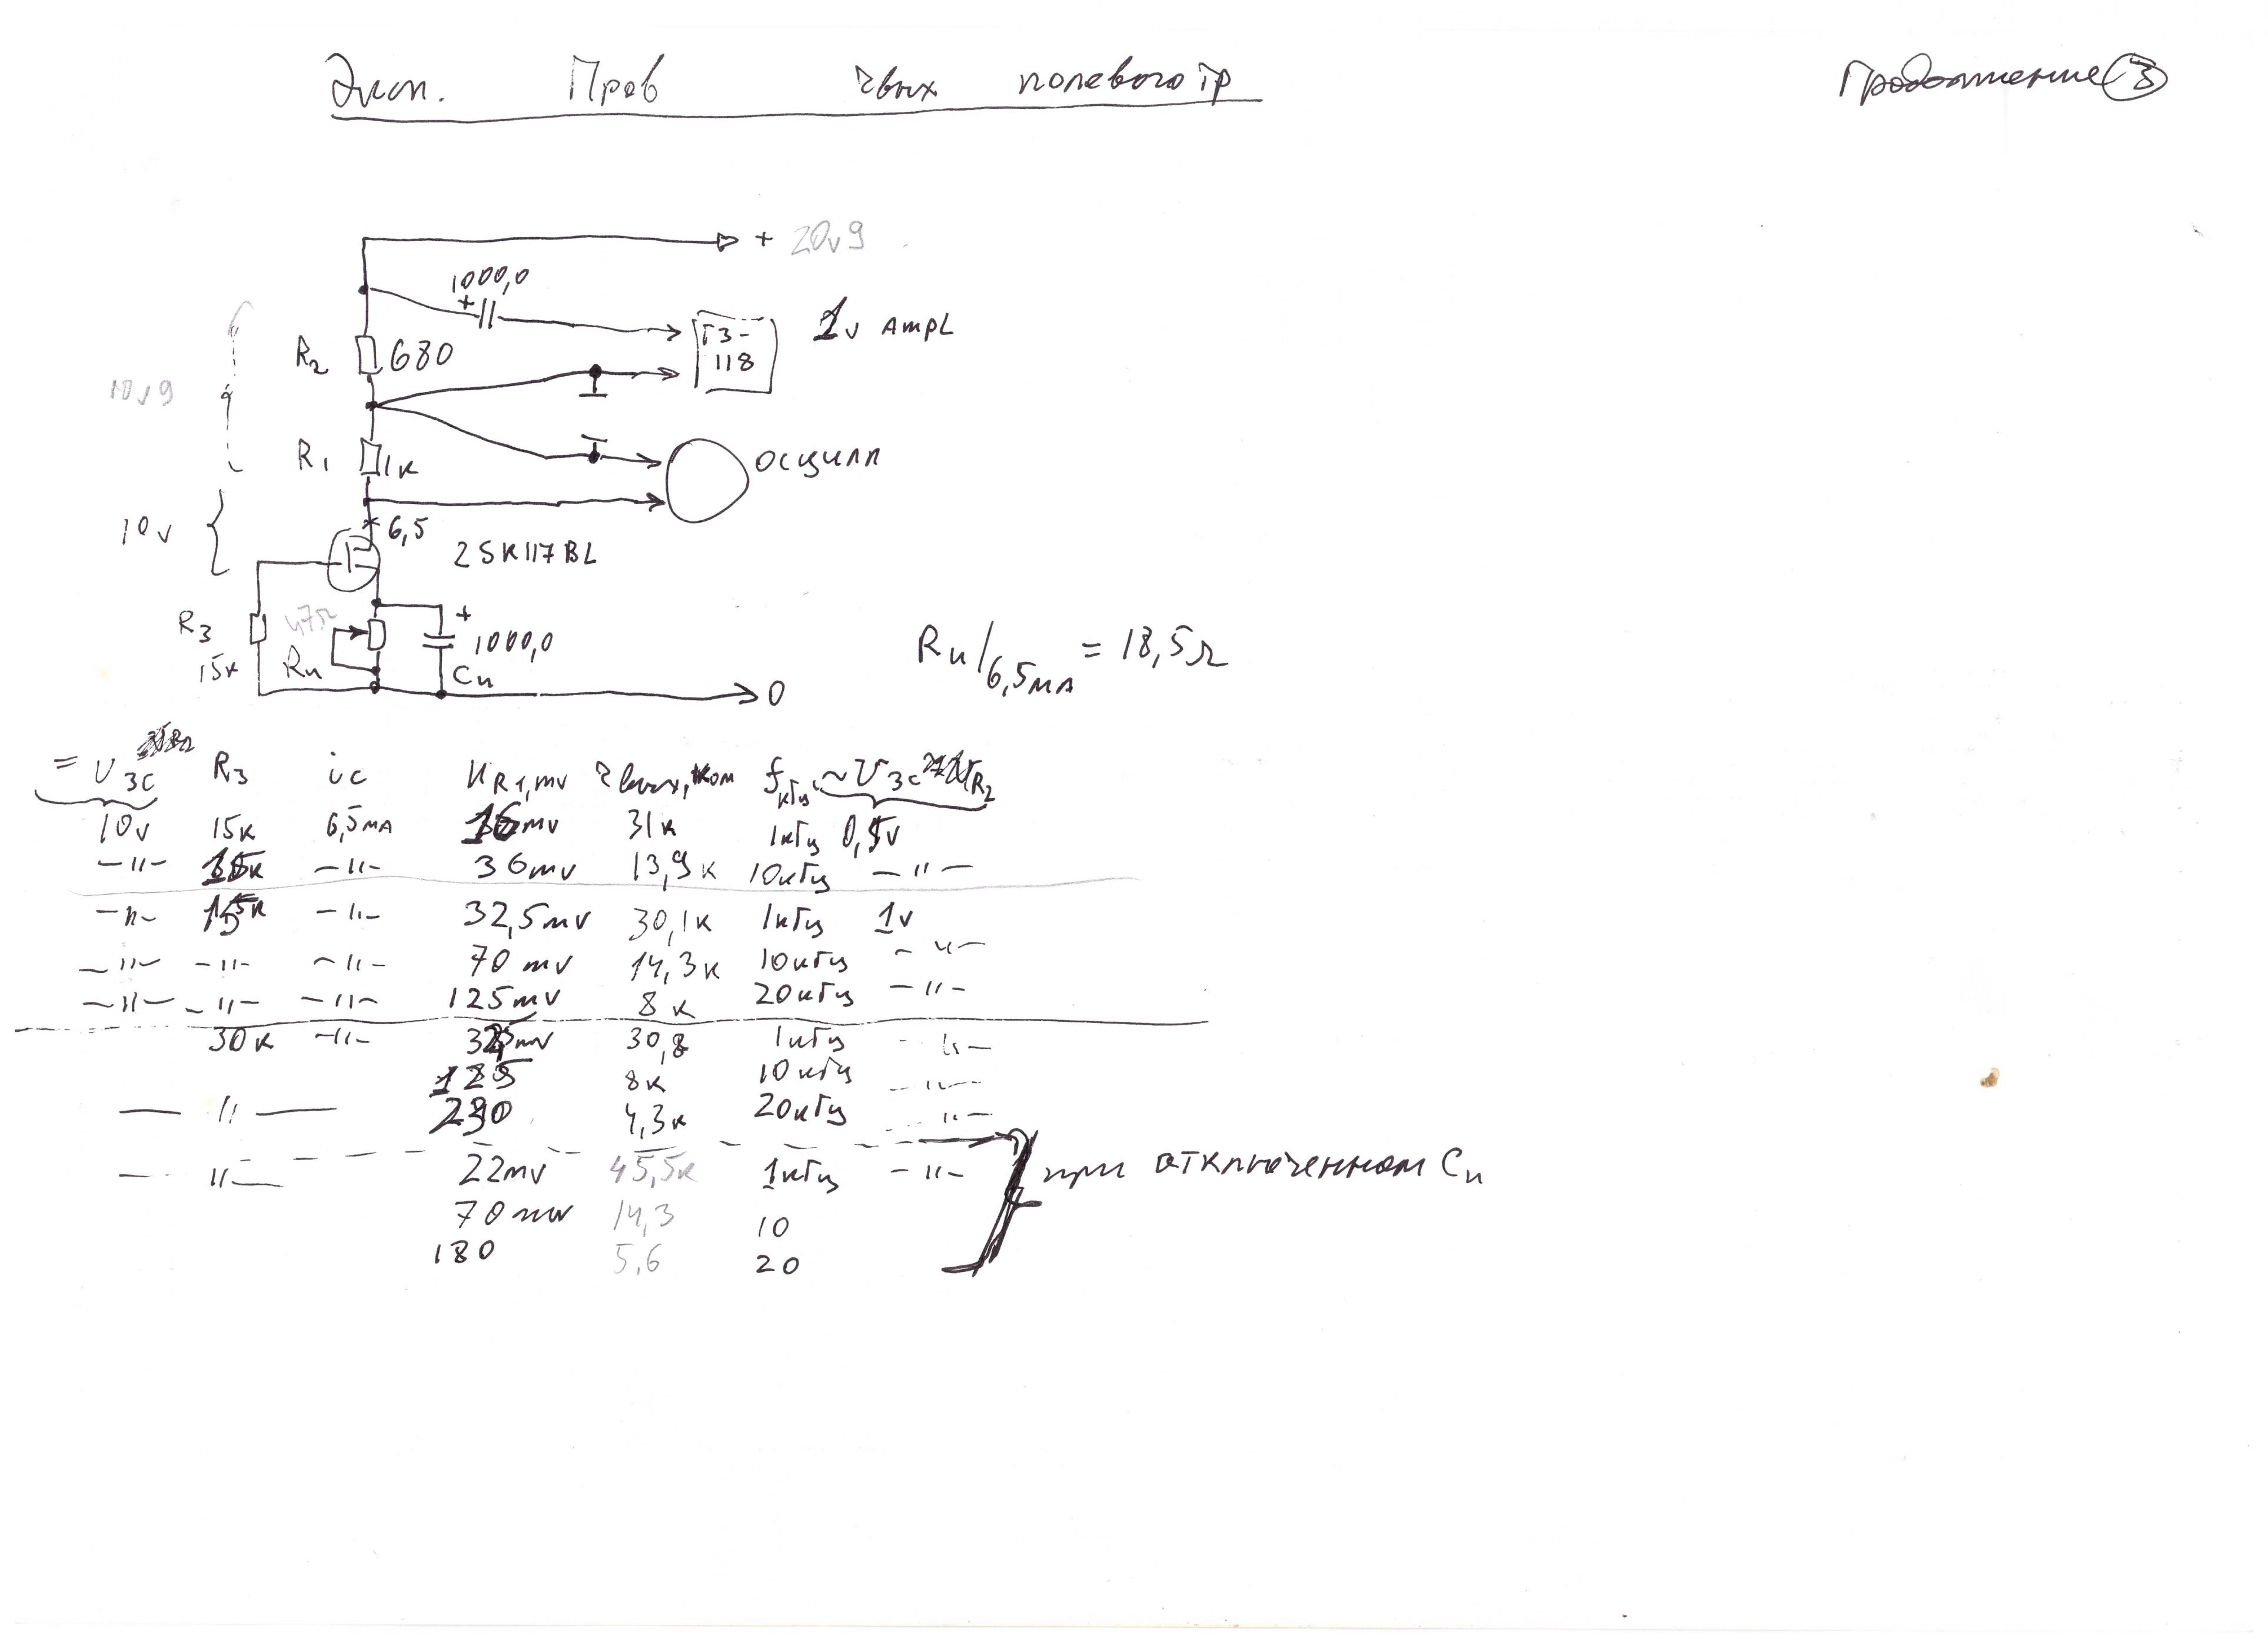 Эксп. Пров rвых полевого тр
Продолжение 3
+ 20v9
1000,0
+
Г3-
118
1v Ampl
R2 680
10v9
R1 1к
осцилл
10v
6,5
2SK117BL
R3
15к
47Ω
Rи
+
1000,0
Cи
0
Rи/6,5мА = 18,5Ω
= U зс R3 iс UR1,mv rвых, ком fкГц ~Uзс
10v 15к 6,5мА 16mv 31к 1кГц 0,5v
-"- 15к -"- 36mv 13,9к 10кГц -"-
-"- 15к -"- 32,5mv 30,1к 1кГц 1v
-"- -"- -"- 70 mv 14,3к 10кГц -"-
-"- -"- -"- 125mv 8к 20кГц -"-
30к -"- 30,8 1кГц -"-
125 8к 10кГц -"-
-"- 230 4,3к 20кГц -"-
-"- 22mv 45,5к 1кГц -"- при отключенном Cи
70mv 14,3 10
180 5,6 20